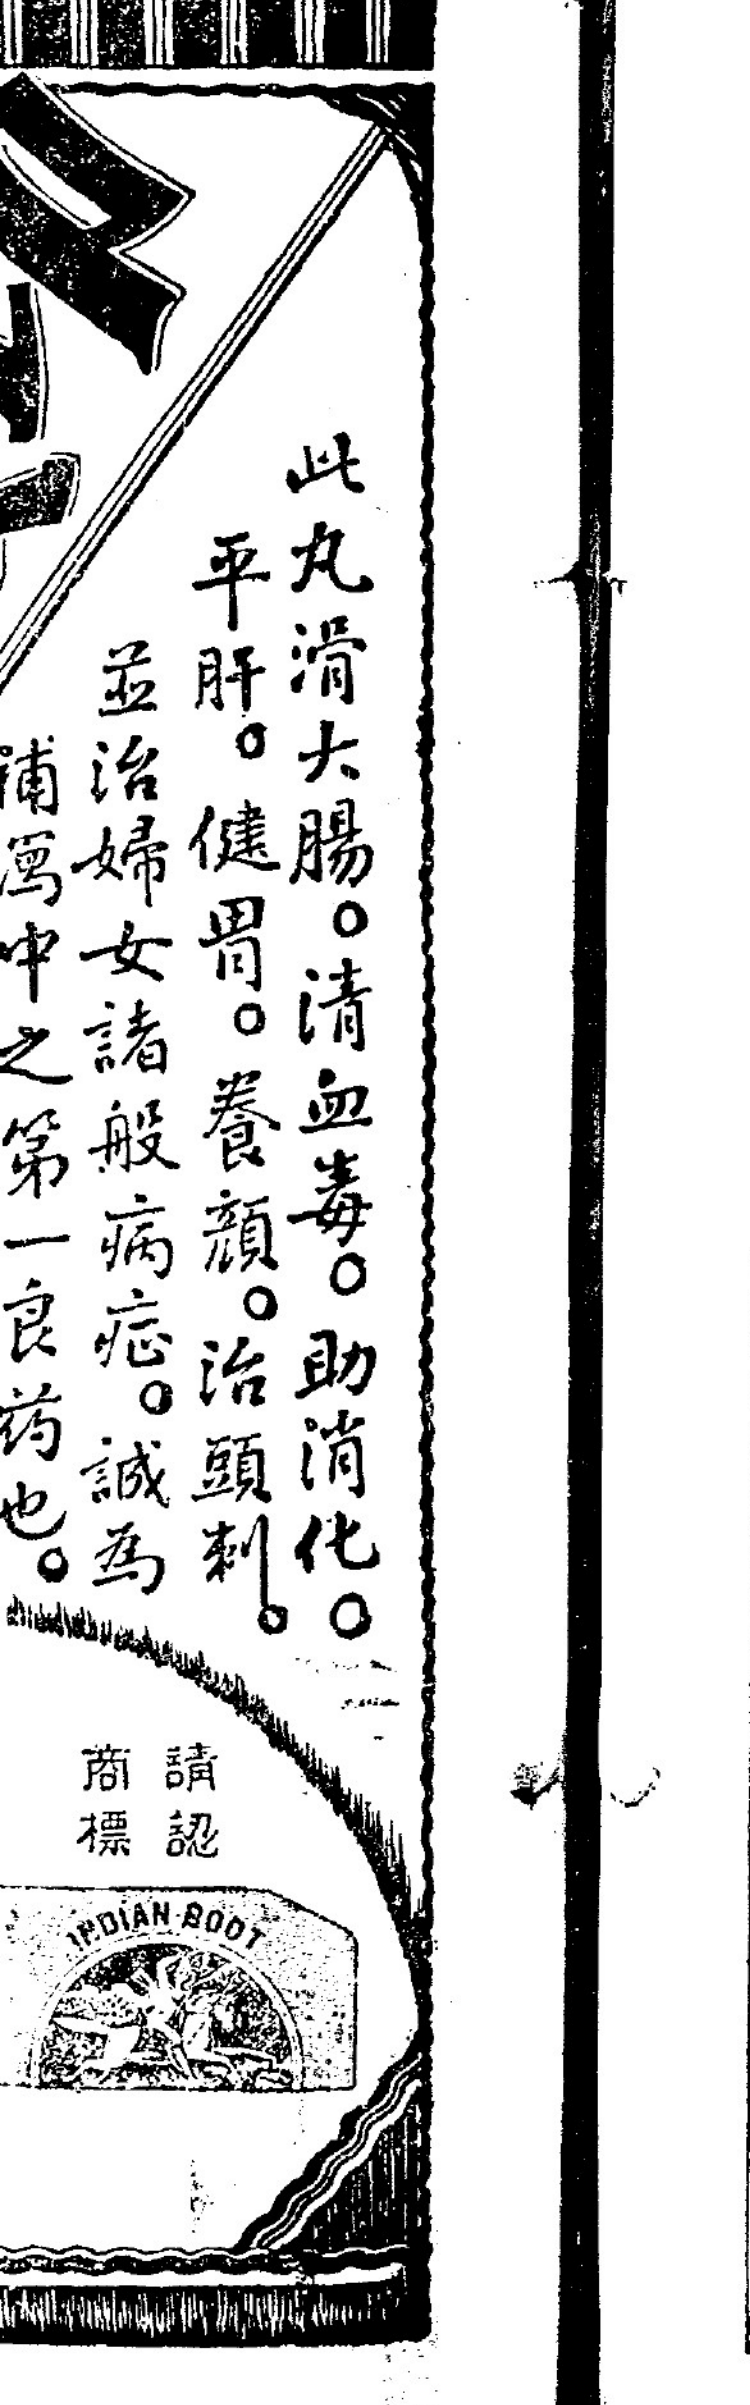 此丸滑大腸。清血毒。助消化。
平肝。健胃。養顔。治頭刺。
並治婦女諸般病症。誠為
補瀉中之第一良药也。
請認
商標
INDIAN·ROOT